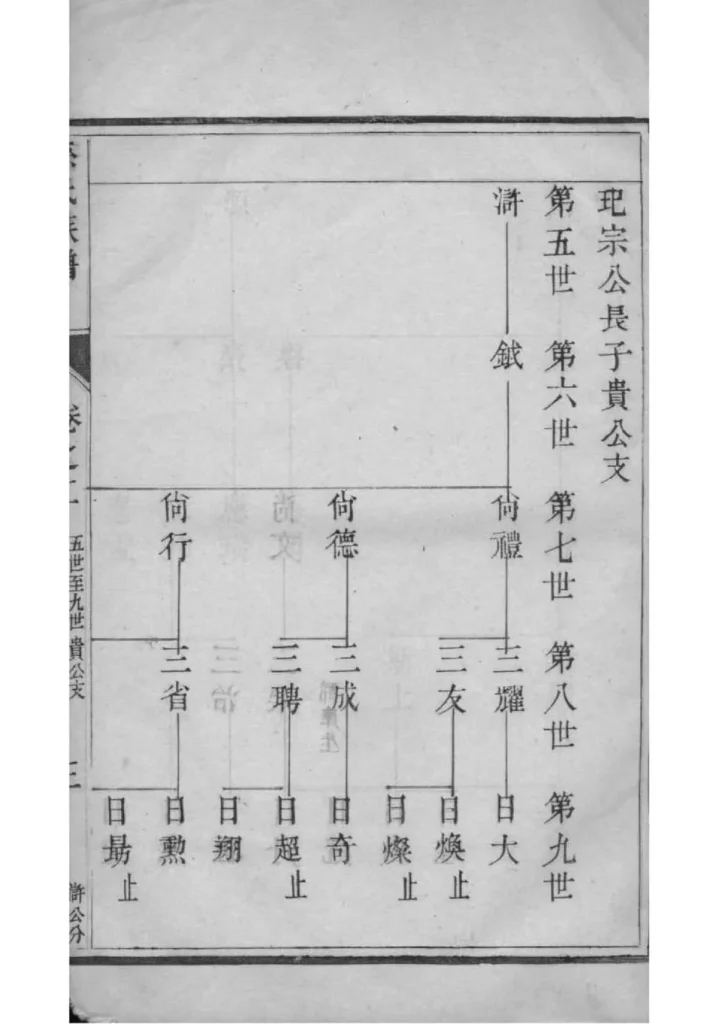 玘宗公長子貴公支
第五世 第六世 第七世 第八世 第九世
滸 鉞 尙禮 三耀 日大
三友 日煥止
日燦止
尙德 三成 日奇
三聘 日超止
日翔
尙行 三省 日勲
日勗止
氏族譜
卷之二
五世至九世貴公支
三
滸公分